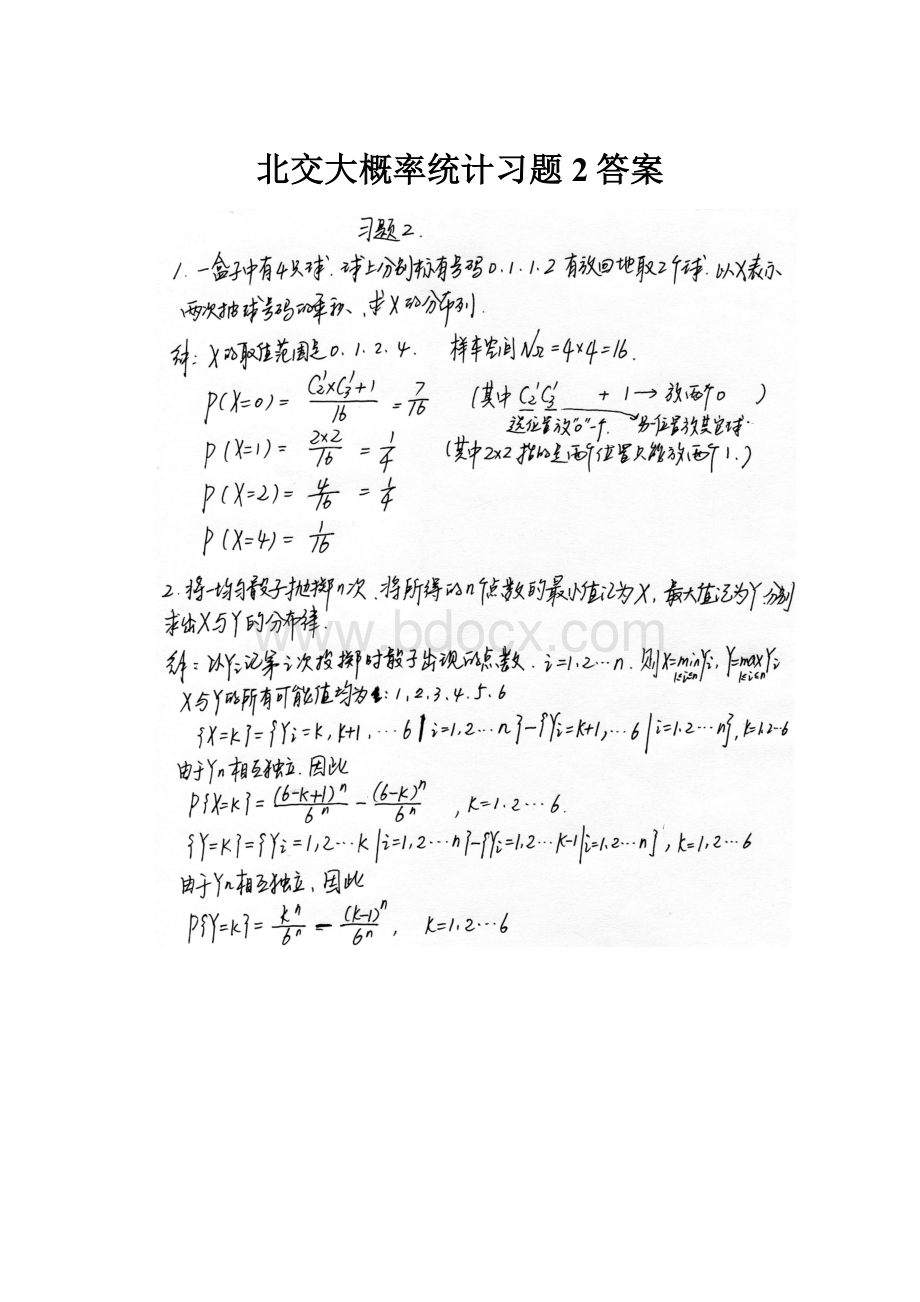 北交大概率统计习题2答案
习题2.
1. 一盒子中有4只球. 球上分别标有号码0.1.1.2 有放回地取2个球. 以X表示
两次抽球号码的乘积、求X的分布列.
解: X的取值范围是0.1.2.4. 样本空间 N_Ω=4×4=16.
P(X=0)= (C₂¹×C₃¹+1)/16 = 7/16 (其中 C₂¹C₃¹ + 1→ 放两个0 )
选位置放"0"一个. 另一位置放其它球.
P(X=1)= 2×2/16 = 1/4 (其中2×2指的是两个位置只能放两个1.)
P(X=2)= 4/16 = 1/4
P(X=4)= 1/16
2. 将一均匀骰子抛掷n次、将所得的n个点数的最小值记为X, 最大值记为Y. 分别
求出X与Y的分布律.
www.bdocx.com
解: 以Yi记第i次投掷时骰子出现的点数. i=1,2…n. 则X=min Yi, Y=max Yi
1≤i≤n 1≤i≤n
X与Y的所有可能值均为: 1,2,3,4.5.6
{X=k}={Yi=k,k+1,…6|i=1,2…n}-{Yi=k+1,…6|i=1.2…n}, k=1.2…6
由于Yn相互独立.因此
P{X=k}= (6-k+1)ⁿ/6ⁿ - (6-k)ⁿ/6ⁿ , k=1.2…6.
{Y=k}={Yi=1,2…k|i=1,2…n}-{Yi=1,2…k-1|i=1,2…n}, k=1,2…6
由于Yn相互独立、因此
P{Y=k}= kⁿ/6ⁿ - (k-1)ⁿ/6ⁿ, k=1,2…6